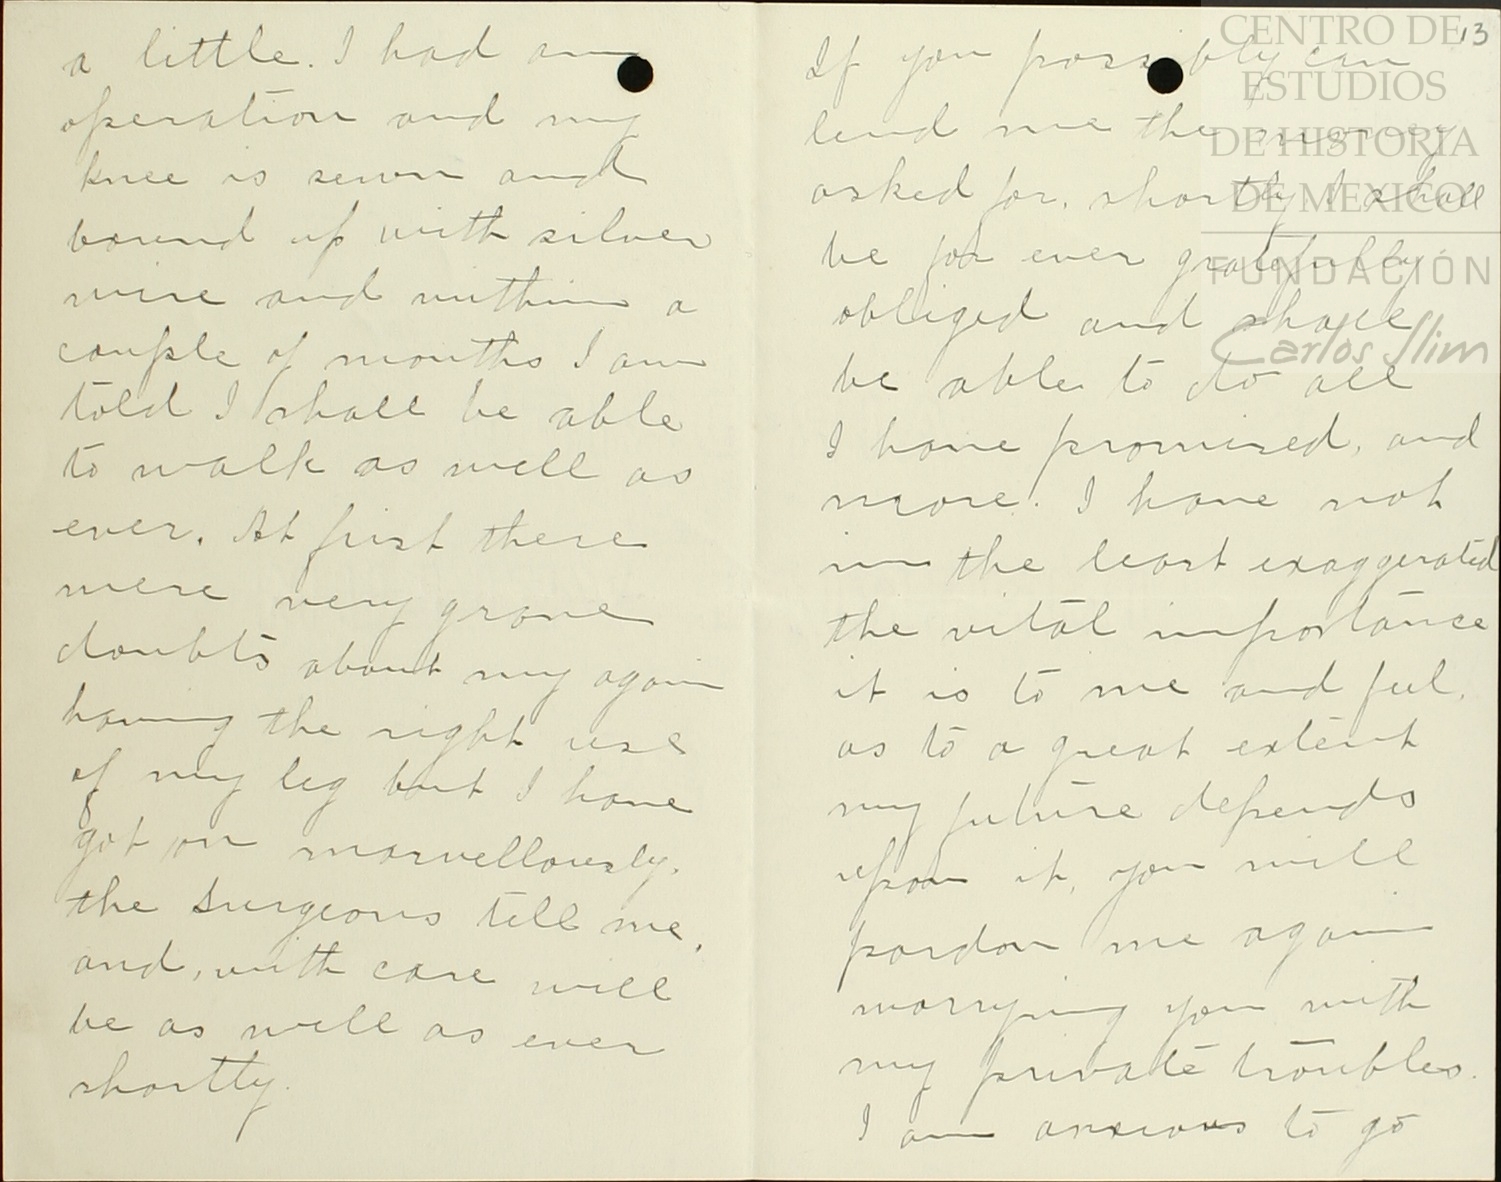 a little. I had an
operation and my
knee is sewn and
bound up with silver
wire and within a
couple of months I am
told I shall be able
to walk as well as
ever. At first there
were very grave
doubts about my again
having the right use
of my leg but I have
got on marvellously.
the surgeons tell me,
and, with care will
be as well as ever
shortly.
13
If you possibly can
lend me the money
asked for, shortly I shall
be for ever gratefully
obliged and shall
be able to do all
I have promised, and
more. I have not
in the least exaggerated
the vital importance
it is to me and feel,
as to a great extent
my future depends
upon it, you will
pardon me again
worrying you with
my private troubles.
I am anxious to go
CENTRO DE
ESTUDIOS
DE HISTORIA
DE MEXICO
FUNDACIÓN
Carlos Slim